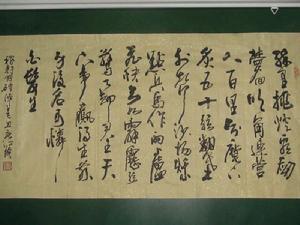 醉里挑灯看劍
夢回吹角連營
八百里分麾下
炙五十弦翻塞
外聲沙場秋
點兵馬作的盧
飛快弓如霹靂弦
驚了却君王天
下事贏得生前
身後名可憐
白髮生